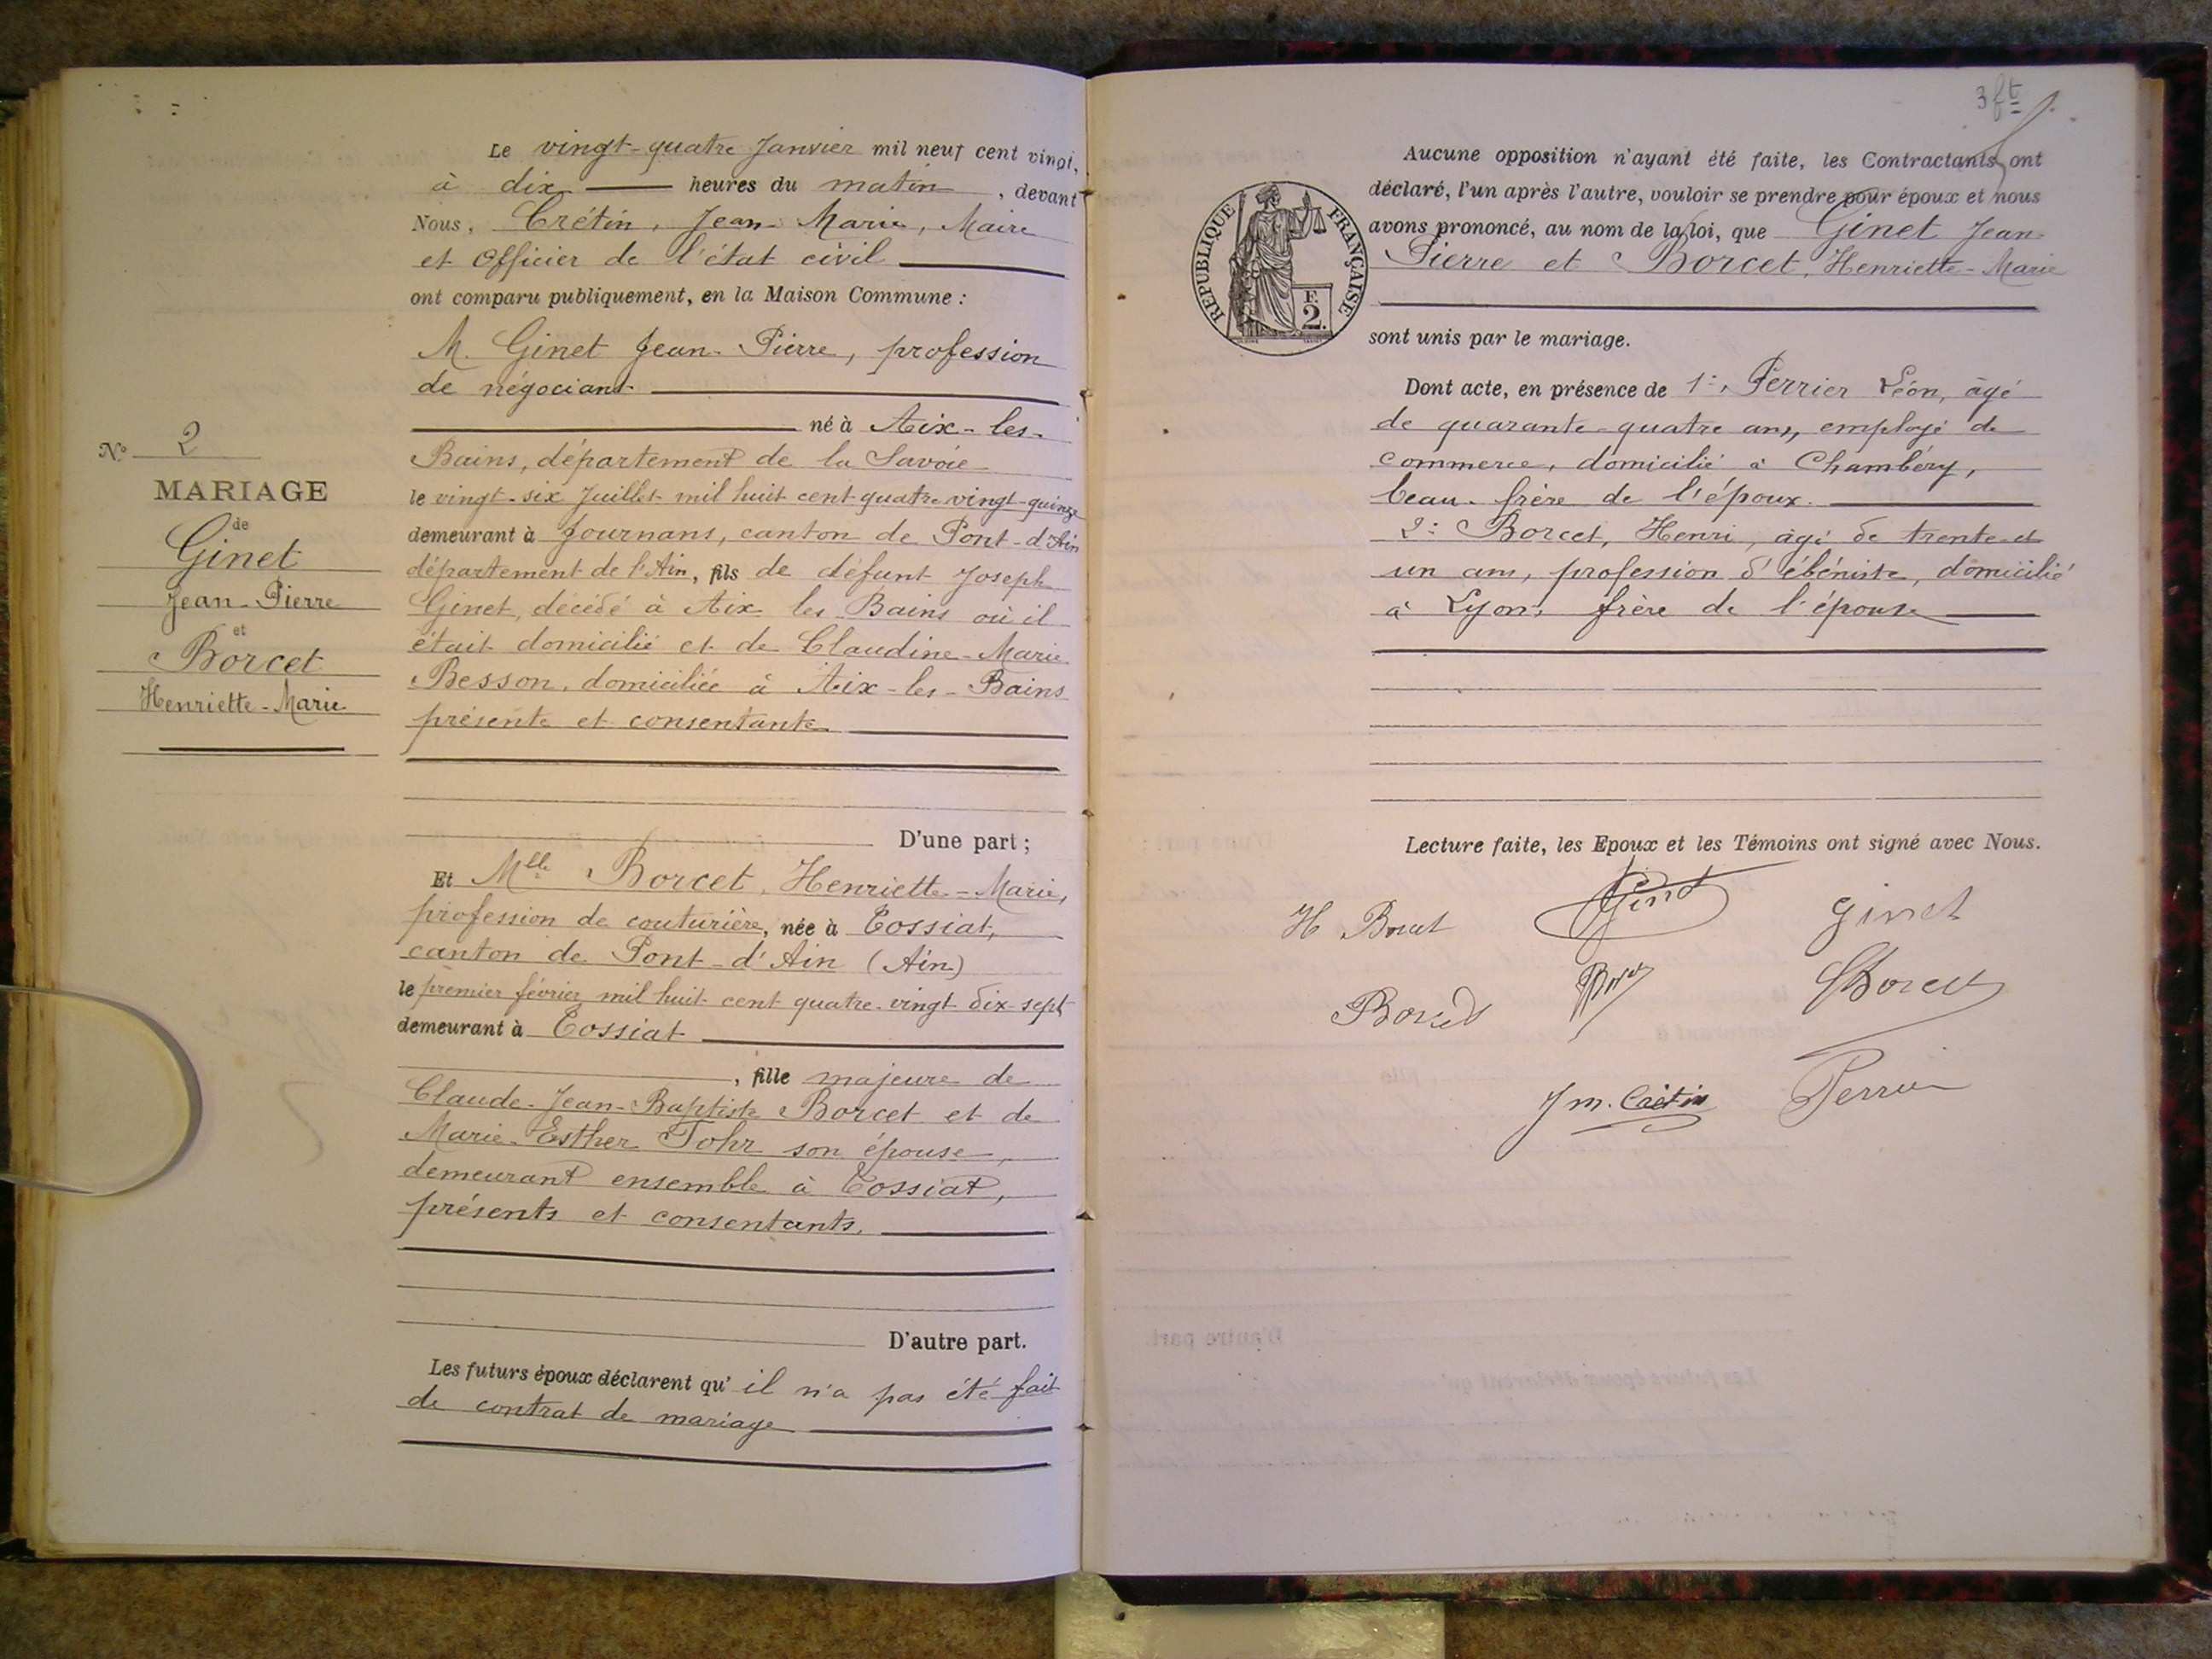 Le vingt-quatre Janvier mil neuf cent vingt,
à dix heures du matin, devant
Nous, Crétin, Jean-Marie, Maire
et Officier de l'état civil
ont comparu publiquement, en la Maison Commune :
M. Ginet Jean-Pierre, profession
de négociant
né à Aix-les-
Bains, département de la Savoie
le vingt-six Juillet mil huit cent quatre vingt-quinze
demeurant à Journans, canton de Pont-d'Ain
département de l'Ain, fils de défunt Joseph
Ginet, décédé à Aix les Bains où il
était domicilié et de Claudine-Marie
Besson, domiciliée à Aix-les-Bains
présente et consentante
N° 2
MARIAGE
de
Ginet
Jean-Pierre
et
Borcet
Henriette-Marie
D'une part ;
Et Mlle Borcet, Henriette-Marie,
profession de couturière, née à Tossiat,
canton de Pont-d'Ain (Ain)
le premier février mil huit cent quatre-vingt dix-sept
demeurant à Tossiat
, fille majeure de
Claude-Jean-Baptiste Borcet et de
Marie-Esther Tohr son épouse,
demeurant ensemble à Tossiat,
présents et consentants.
D'autre part.
Les futurs époux déclarent qu'il n'a pas été fait
de contrat de mariage
3 ft
Aucune opposition n'ayant été faite, les Contractants ont
déclaré, l'un après l'autre, vouloir se prendre pour époux et nous
avons prononcé, au nom de la loi, que Ginet Jean-
Pierre et Borcet, Henriette-Marie
REPUBLIQUE FRANÇAISE
F.
2.
sont unis par le mariage.
Dont acte, en présence de 1°, Perrier Léon, âgé
de quarante-quatre ans, employé de
commerce, domicilié à Chambéry,
beau-frère de l'époux.
2° Borcet, Henri, âgé de trente et
un ans, profession d'ébéniste, domicilié
à Lyon, frère de l'épouse
Lecture faite, les Epoux et les Témoins ont signé avec Nous.
H Borcet Ginet Ginet
Borcet Borcet Borcet
J m. Crétin Perrier